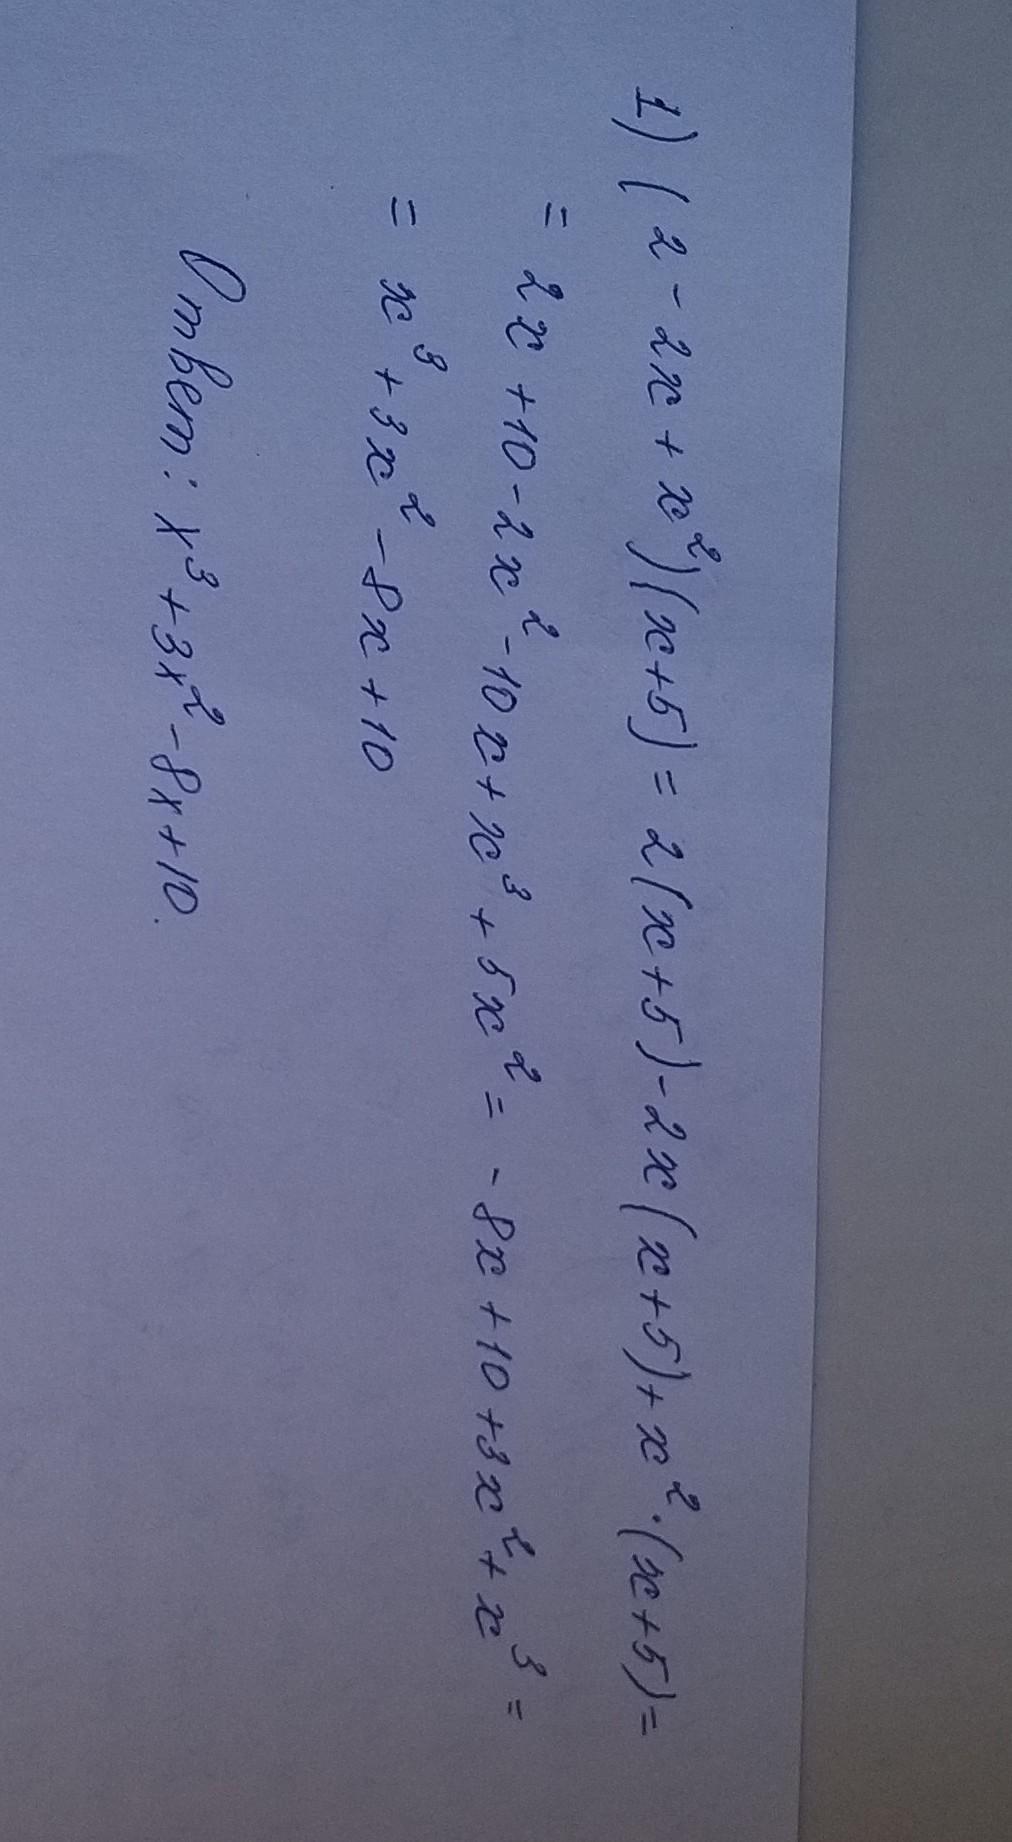 1) (2 - 2x + x²)(x+5) = 2(x+5) - 2x(x+5) + x²·(x+5) =
= 2x + 10 - 2x² - 10x + x³ + 5x² = - 8x + 10 + 3x² + x³ =
= x³ + 3x² - 8x + 10
Ответ: x³ + 3x² - 8x + 10.